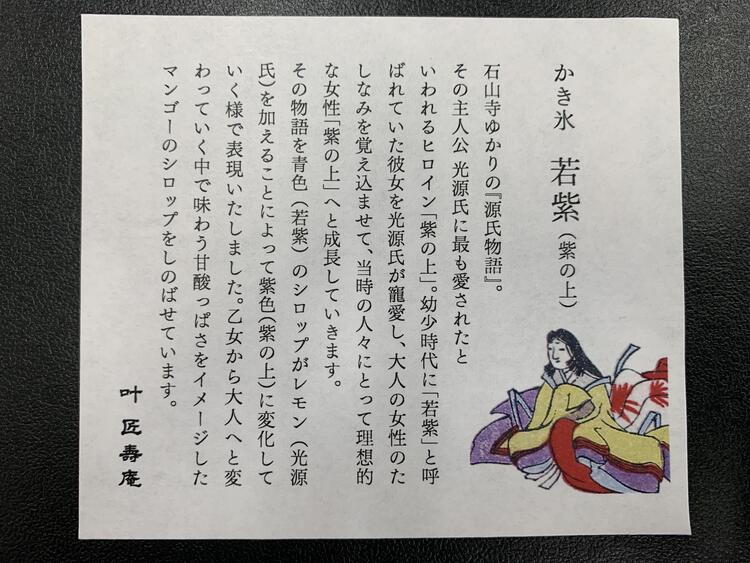 かき氷　若紫（紫の上）
石山寺ゆかりの『源氏物語』。
その主人公 光源氏に最も愛されたと
いわれるヒロイン「紫の上」。幼少時代に「若紫」と呼
ばれていた彼女を光源氏が寵愛し、大人の女性のた
しなみを覚え込ませて、当時の人々にとって理想的
な女性「紫の上」へと成長していきます。
その物語を青色（若紫）のシロップがレモン（光源
氏）を加えることによって紫色（紫の上）に変化して
いく様で表現いたしました。乙女から大人へと変
わっていく中で味わう甘酸っぱさをイメージした
マンゴーのシロップをしのばせています。
叶 匠壽庵